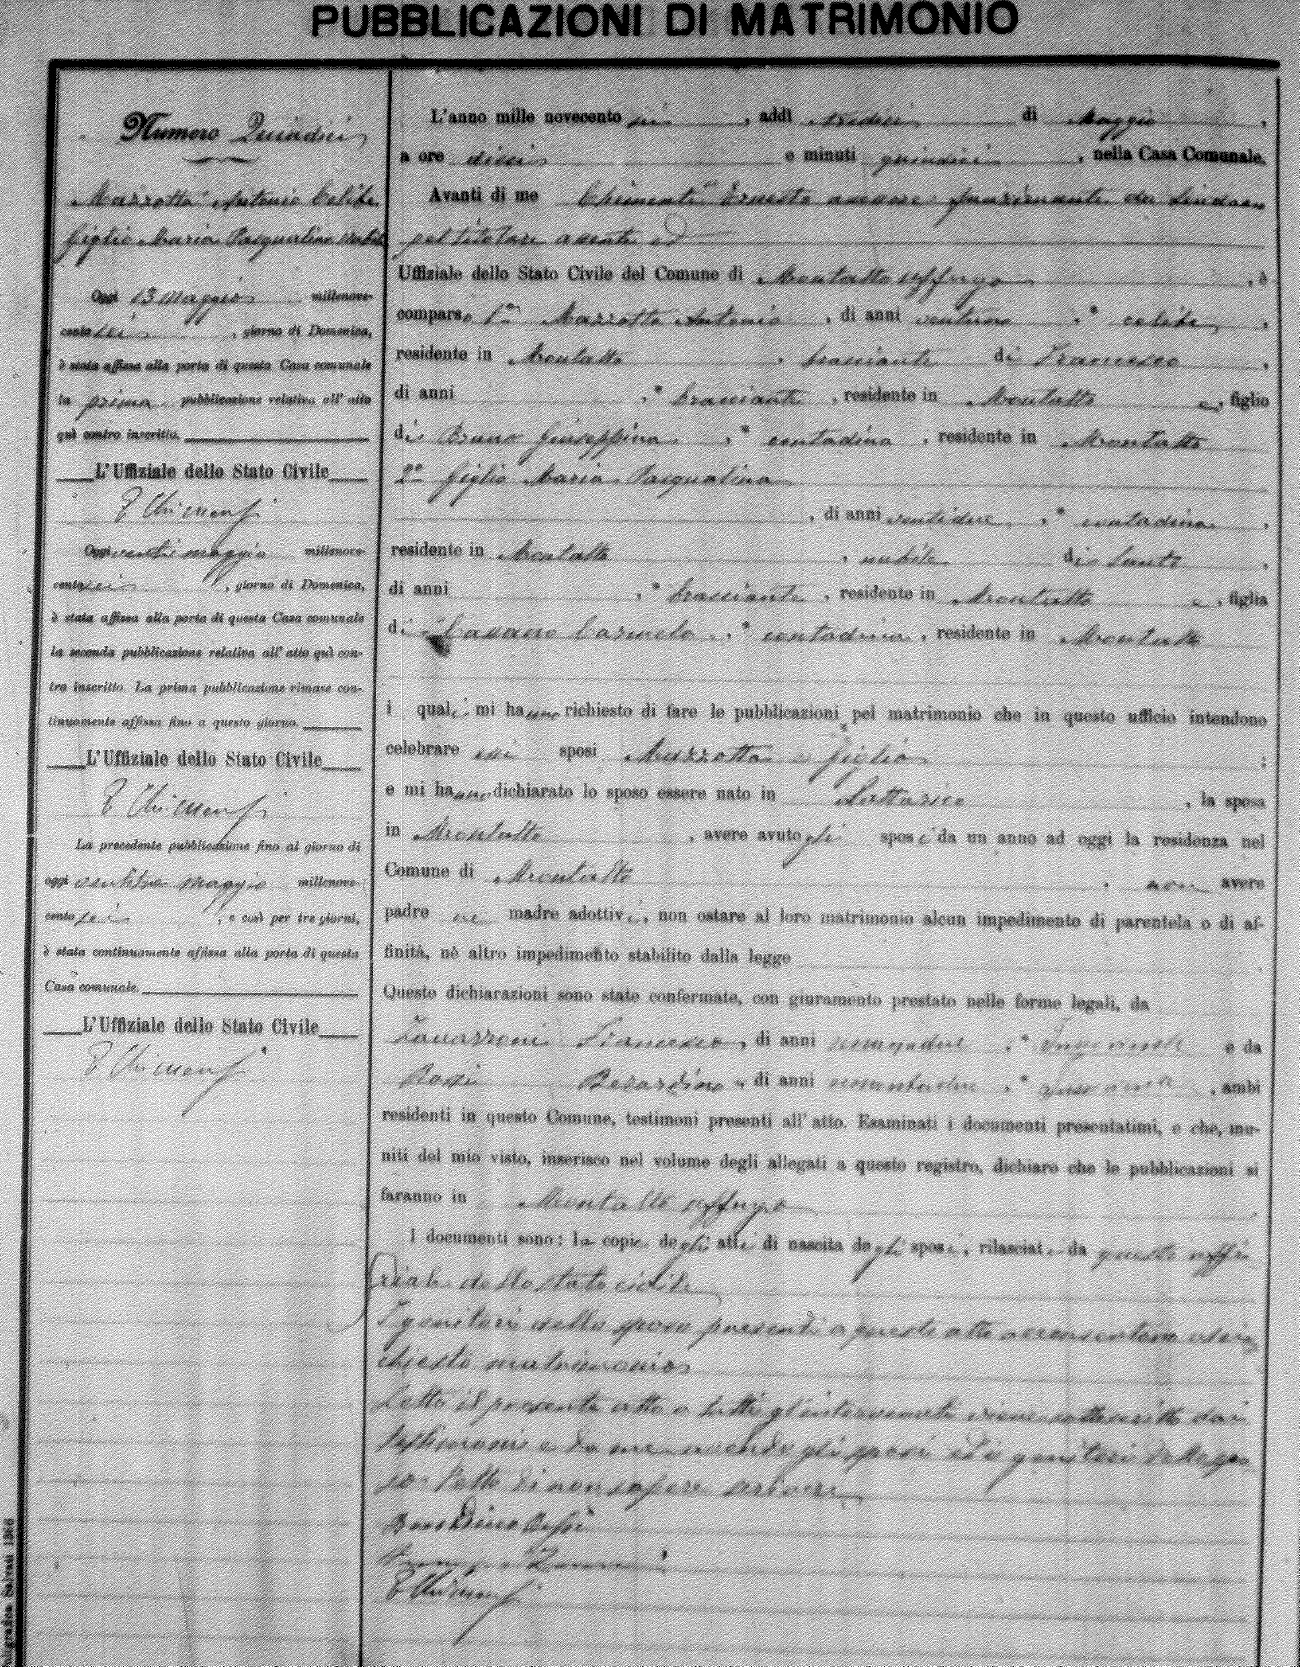 PUBBLICAZIONI DI MATRIMONIO
Numero Quindici
Mazzotta Antonio Celibe
figlio Maria Pasqualina nubile
Oggi 13 maggio millenove-
cento sei, giorno di Domenica,
è stata affissa alla porta di questa Casa comunale
la prima pubblicazione relativa all'atto
quì contro inscritto.
L'Uffiziale dello Stato Civile
E Chimenti
Oggi venti maggio millenove-
cento sei, giorno di Domenica,
è stata affissa alla porta di questa Casa comunale
la seconda pubblicazione relativa all'atto quì con-
tro inscritto. La prima pubblicazione rimase con-
tinuamente affissa fino a questo giorno.
L'Uffiziale dello Stato Civile
E Chimenti
La precedente pubblicazione fino al giorno di
oggi maggio millenove-
cento sei, e così per tre giorni,
è stata continuamente affissa alla porta di questa
Casa comunale.
L'Uffiziale dello Stato Civile
E Chimenti
L'anno mille novecento sei, addì tredici di Maggio,
a ore dieci e minuti quindici, nella Casa Comunale.
Avanti di me Chimenti Ernesto assessore funzionante da Sindaco
pel titolare assente ed
Uffiziale dello Stato Civile del Comune di Montalto Uffugo, è
comparso 1º Mazzotta Antonio, di anni ventuno, * celibe,
residente in Montalto, bracciante di Francesco,
di anni , * bracciante, residente in Montalto e, figlio
di Bruno Giuseppina, * contadina, residente in Montalto
2º figlio Maria Pasqualina
, di anni ventidue, * contadina,
residente in Montalto, nubile di Santo,
di anni , * bracciante, residente in Montalto e, figlia
di Carmela, * contadina, residente in Montalto
i quali mi hanno richiesto di fare le pubblicazioni pel matrimonio che in questo ufficio intendono
celebrare essi sposi Mazzotta e figlio;
e mi hanno dichiarato lo sposo essere nato in Lattarico, la sposa
in Montalto, avere avuto gli sposi da un anno ad oggi la residenza nel
Comune di Montalto. non avere
padre ne madre adottivi, non ostare al loro matrimonio alcun impedimento di parentela o di af-
finità, nè altro impedimento stabilito dalla legge
Queste dichiarazioni sono state confermate, con giuramento prestato nelle forme legali, da
Francesco, di anni , * e da
Rossi Berardino, di anni , * , ambi
residenti in questo Comune, testimoni presenti all'atto. Esaminati i documenti presentatimi, e che, mu-
niti del mio visto, inserisco nel volume degli allegati a questo registro, dichiaro che le pubblicazioni si
faranno in Montalto Uffugo
I documenti sono: le copie degli atti di nascita degli sposi, rilasciate da questo uffi
ziale dello stato civile
I genitori dello sposo presenti a questo atto acconsentono al ri
chiesto matrimonio
Letto il presente atto a tutti gl'intervenuti viene sottoscritto dai
testimonii e da me avendo gli sposi ed i genitori dello spo
so detto di non sapere scrivere
Berardino Rossi
E Chimenti